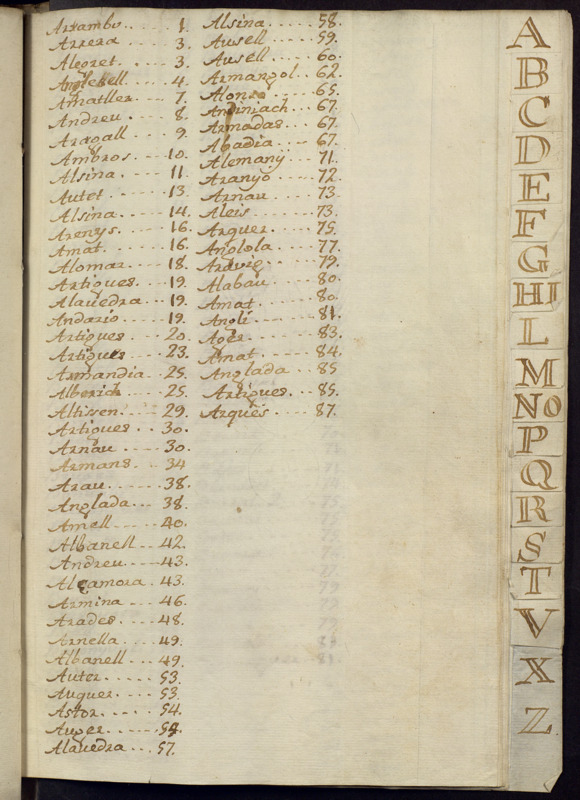 Artambo..... 1.
Arrera .... 3.
Alegret.... 3.
Anglesell... 4.
Amatller... 7.
Andreu.... 8.
Aragall... 9.
Ambros.... 10.
Alsina.... 11.
Autet.... 13.
Alsina.... 14.
Arenys.... 16.
Amat.... 16.
Alomar... 18.
Artigues... 19.
Alavedra... 19.
Andario... 19.
Artigues... 20.
Artigues... 23.
Armandia.. 25.
Alberich... 25.
Altissen... 29.
Artigues... 30.
Arnau... 30.
Armans... 34
Arau.... 38.
Anglada... 38.
Amell.... 40.
Albanell... 42.
Andreu.... 43.
Alçamora. 43.
Armina.... 46.
Arades... 48.
Arnella... 49.
Albanell... 49.
Auter.... 53.
Auguer.... 53.
Astor..... 54.
Auger.... 54.
Alavedra... 57.
Alsina.... 58.
Ausell.... 59.
Ausell.... 60.
Armangol.. 62.
Alonso.... 65.
Andiniach.. 67.
Armadas... 67.
Abadia.... 67.
Alemany... 71.
Aranyó.... 72.
Arnau.... 73.
Aleis.... 73.
Arquer.... 75.
Anglola... 77.
Alabau.... 80.
Amat..... 80.
Anglí.... 81.
Ager.... 83.
Amat.... 84.
Anglada... 85
Artigues... 85.
Arqués.... 87.
A
B
C
D
E
F
G
HI
L
M
NO
P
Q
R
S
T
V
X
Z